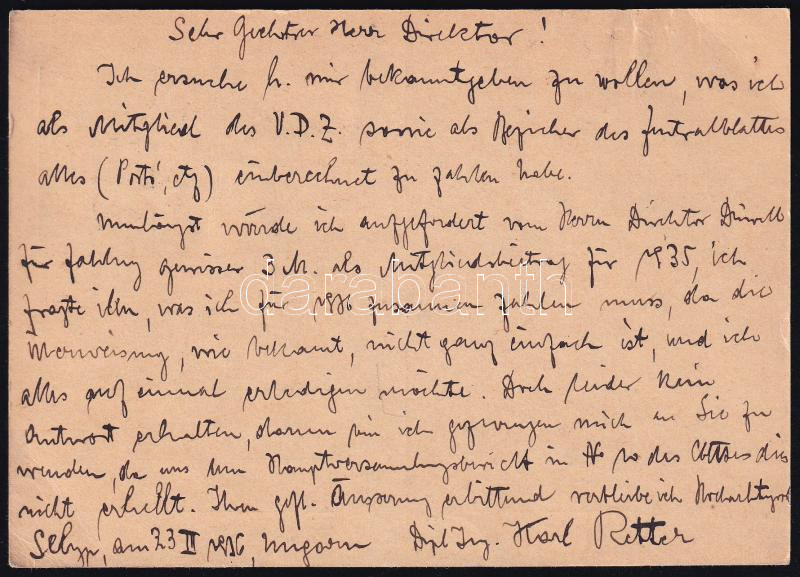 Sehr Geehrter Herr Direktor!
Ich ersuche h. mir bekanntgeben zu wollen, was ich
als Mitglied des V.D.Z. sowie als Bezieher des Zentralblattes
alles (Porto, etz) einberechnet zu zahlen habe.
Unlängst würde ich aufgefordert vom Herrn Direktor
für Zahlung gewisser 3 M. als Mitgliedsbeitrag für 1935, ich
fragte ihn, was ich für 1936 zusammen zahlen muss, da die
wie bekannt, nicht ganz einfach ist, und ich
alles auf einmal erledigen möchte. Doch leider kein
Antwort erhalten, darum bin ich gezwungen mich an Sie zu
wenden, da uns dem Hauptversammlungsbericht in No 10 des dies
nicht erhellt. Ihre gefl. Äusserung erbittend verbleibe ich Hochachtungsvoll
am 23 II 1936, Ungarn Dipl Ing. Karl Retter
darabanth